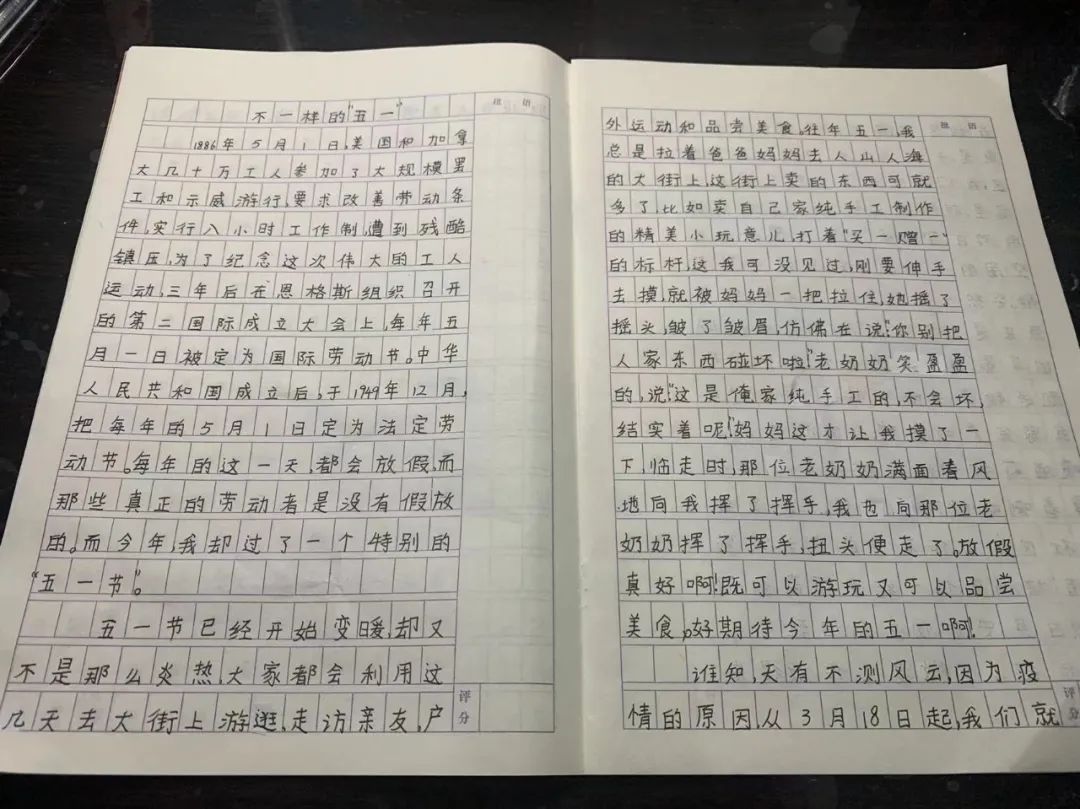 批语
不一样的"五一"
1886年5月1日,美国和加拿
大几十万工人参加了大规模罢
工和示威游行,要求改善劳动条
件,实行八小时工作制,遭到残酷
镇压,为了纪念这次伟大的工人
运动,三年后在恩格斯组织召开
的第二国际成立大会上,每年五
月一日被定为国际劳动节。中华
人民共和国成立后,于1949年12月,
把每年的5月1日定为法定劳
动节。每年的这一天,都会放假,而
那些真正的劳动者是没有假放
的。而今年,我却过了一个特别的
"五一节"。
五一节已经开始变暖,却又
不是那么炎热,大家都会利用这
几天去大街上游逛,走访亲友,户
评分
批语
外运动和品尝美食。往年五一我
总是拉着爸爸妈妈去人山人海
的大街上,这街上卖的东西可就
多了,比如卖自己家纯手工制作
的精美小玩意儿,打着"买一赠一"
的标杆,这我可没见过,刚要伸手
去摸,就被妈妈一把拉住,她摇了
摇头,皱了皱眉,仿佛在说:"你别把
人家东西碰坏啦!"老奶奶笑盈盈
的,说:"这是俺家纯手工的,不会坏,
结实着呢!"妈妈这才让我摸了一
下,临走时,那位老奶奶满面春风
地向我挥了挥手,我也向那位老
奶奶挥了挥手,扭头便走了。放假
真好啊!既可以游玩又可以品尝
美食,好期待今年的五一啊!
谁知,天有不测风云,因为疫
情的原因,从3月18日起,我们就
评分